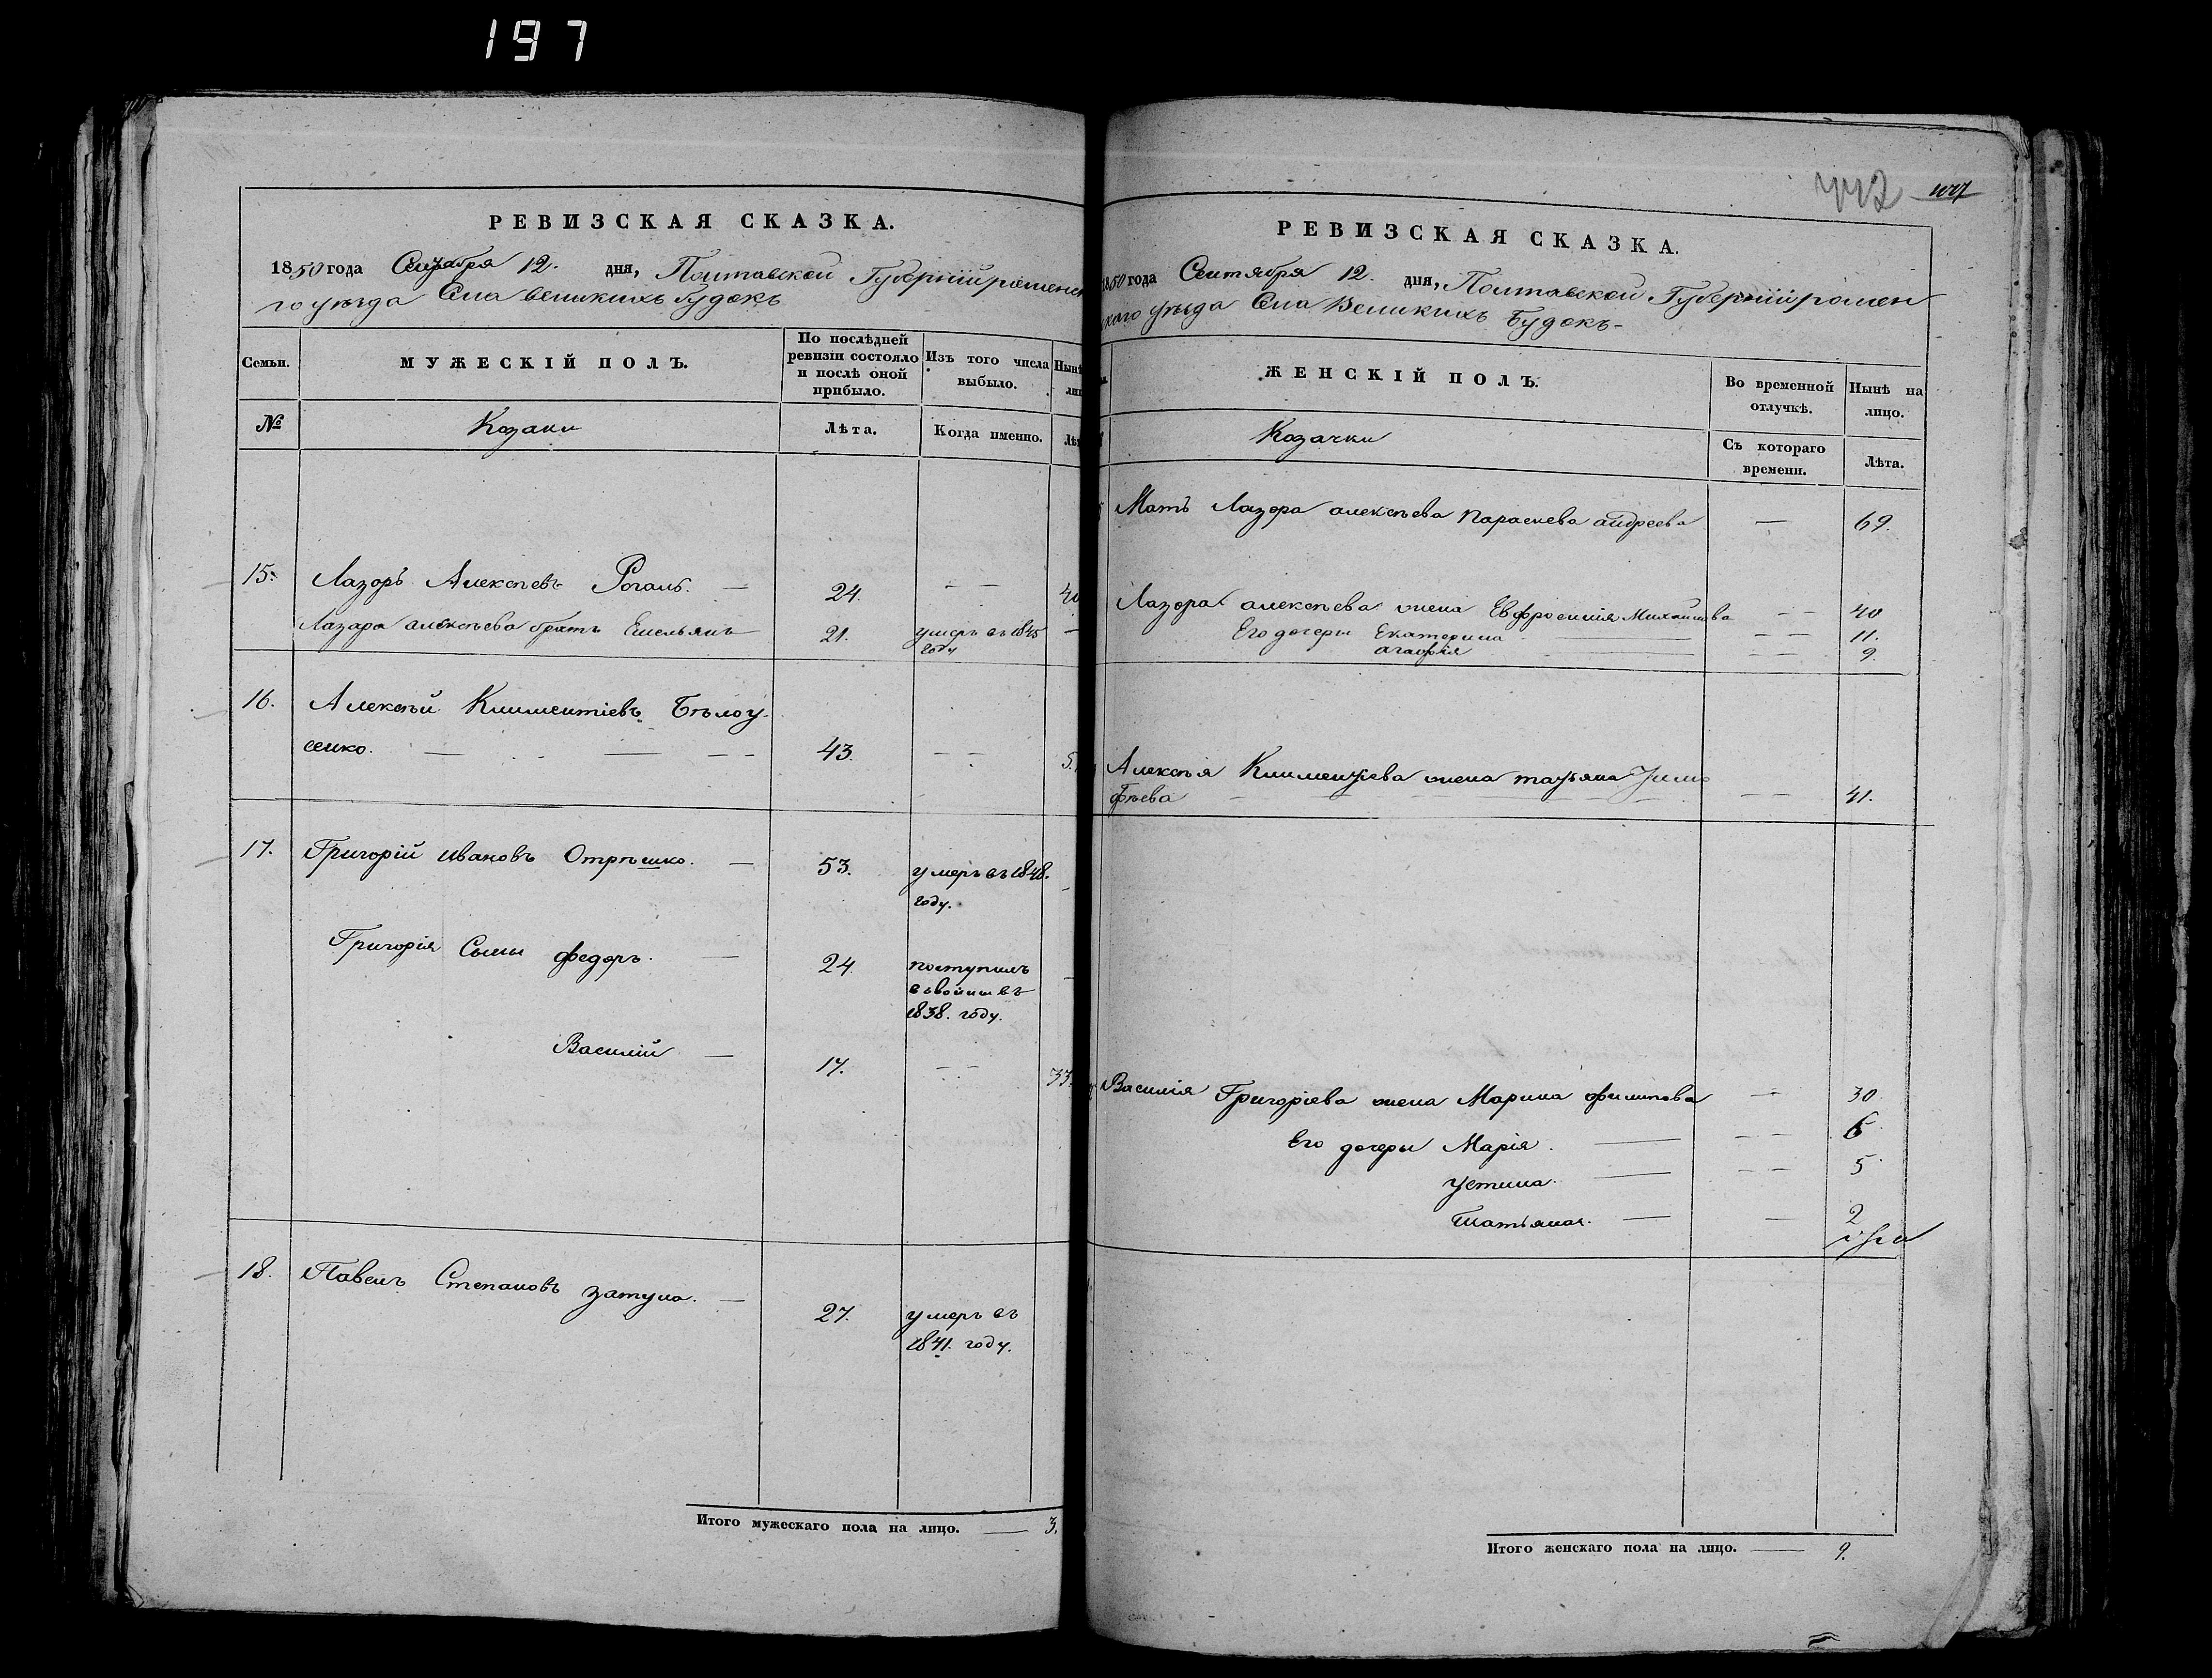 197
РЕВИЗСКАЯ СКАЗКА.
1850 года Сентября 12. дня, Полтавской Губерніи роменска
го уѣзда Села великихъ будокъ
Семьи.
МУЖЕСКІЙ ПОЛЪ.
По послѣдней ревизіи состояло и послѣ оной прибыло.
Изъ того числа выбыло.
Нынѣ
№
Козаки
Лѣта.
Когда именно.
15. Лазоръ Алексѣевъ Рогаль. — 24. — — 40
Лазара алексѣева братъ Емельянъ 21. умеръ въ 1845 году —
16. Алексѣй Климентіевъ Бѣлоу-
сенко. — — — 43. — —
17. Григорій ивановъ Отрѣшко. — 53. умеръ въ 1848. году. —
Григорія Сыны федоръ. — 24 поступилъ 1838. году. —
Василій — 17. — — 33.
18. Павелъ Степановъ затула. — 27. умеръ въ 1841. году.
Итого мужескаго пола на лицо. — 3.
442
РЕВИЗСКАЯ СКАЗКА.
1850 года Сентября 12. дня, Полтавской Губерніи ромен
скаго уѣзда Села Великихъ Будокъ-
ЖЕНСКІЙ ПОЛЪ.
Во временной отлучкѣ.
Нынѣ на лицо.
Козачки
Съ котораго времени.
Лѣта.
Мать Лазора алексѣева параскева андреева — 69.
Лазора алексѣева жена Евфросинія Михаилова — — 40
Его дочери Екатерина — — — 11.
агафія — — — 9.
Алексѣя Климентіева жена татьяна Тимо
фѣева — — 41.
Василія Григоріева жена Марина филипова — 30
Его дочеры Марія. — — — 6
устина. — — — 5
Татьяна. — — 2
Итого женскаго пола на лицо. — 9.